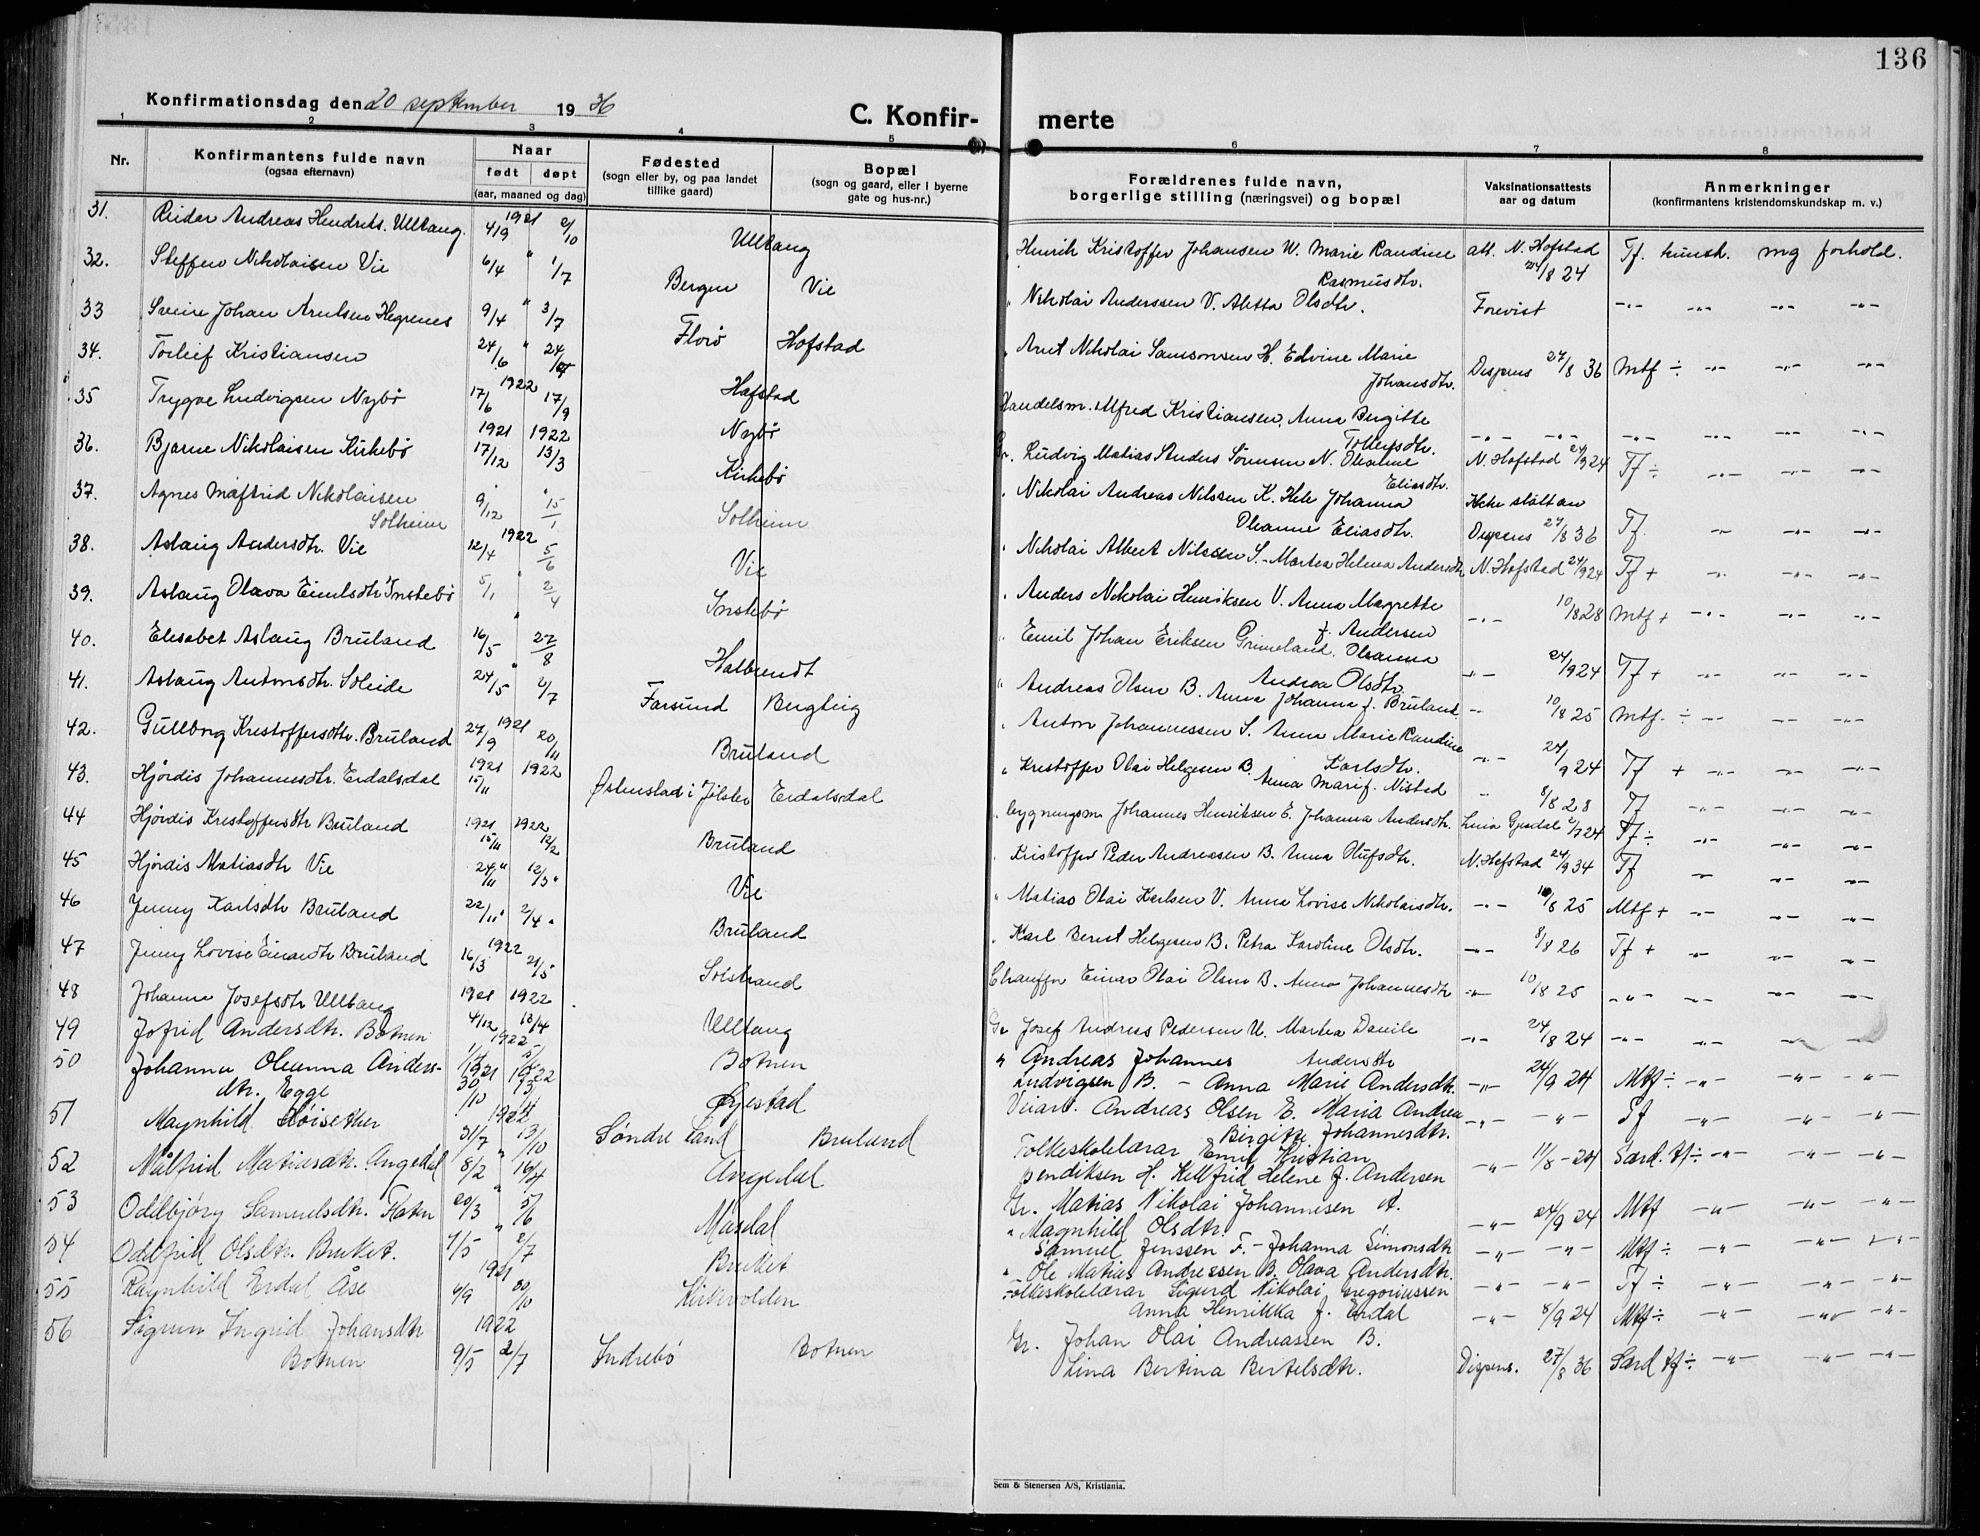 136
Konfirmationsdag den 20 september 1936
C. Konfir- merte
1 2 3 4 5 6 7 8
Nr.
Konfirmantens fulde navn
(ogsaa efternavn)
Naar
født døpt
(aar, maaned og dag)
Fødested
(sogn eller by, og paa landet
tillike gaard)
Bopæl
(sogn og gaard, eller i byerne
gate og hus-nr.)
Forældrenes fulde navn,
borgerlige stilling (næringsvei) og bopæl
Vaksinationsattests
aar og datum
Anmerkninger
(konfirmantens kristendomskundskap m. v.)
31. Reidar Andreas Hendriks. Ulltang. 1921 4/9 2/10 Ulltang
Henrik Kristoffer Johansen U. Marie Randine Rasmusdtr. att. N. Hofstad 24/8 24 Tf. kunsk. mg forhold.
32. Steffen Nikolaisen Vie 6/4 " 1/7 Bergen Vie
" Nikolai Anderssen V. Aletta Olsdtr. Forevist -"- -"- -"- -"-
33 Sveine Johan Arntsen Hegrenes 9/4 " 3/7 Florø Hofstad
" Arnt Nikolai Samsonsen H. Edvine Marie Johansdtr. Dispens 27/8 36 Mtf ÷ -"- -"- -"-
34. Torleif Kristiansen 24/6 " 24/ Hafstad
Handelsm. Alfred Kristiansen, Anna Bergitte Tollefsdtr. -"- -"- -"- -"- -"- -"-
35 Trygve Ludvigsen Nybø 1922 17/6 17/9 Nybø
Gr. Ludvig Matias Anders Sørensen N. Oleanne Eliasdtr. N. Hofstad 24/9 24 Tf ÷ -"- -"- -"-
36. Bjarne Nikolaisen Kirkebø 1921 17/12 1922 13/3 Kirkebø
" Nikolai Andreas Nilssen K. Hele Johanna Oleanne Eliasdtr. Ikke slått an Dispens 27/8 36 Tf. -"- -"- -"-
37. Agnes Malfrid Nikolaisen Solheim 9/12 " 15/1 Solheim
" Nikolai Albert Nilssen S. - Martea Helena Andersdtr N. Hofstad 24/9 24 Tf + -"- -"- -"-
38. Aslaug Andersdtr. Vie 1922 12/4 5/6 Vie
" Anders Nikolai Henriksen V. Anna Magrette f. Andersen -"- 10/8 28 Mtf + -"- -"- -"-
39. Aslaug Olava Emilsdtr Instebø 5/1 " 2/4 Instebø
" Emil Johan Eriksen Grimeland. Oleanna Andrea Olsdtr. -"- 24/9 24 Tf + -"- -"- -"-
40. Elisabet Aslaug Bruland 16/5 " 27/8 Halbrendt
" Andreas Olsen B. Anna Johanna f. Bruland -"- 10/8 25 Mtf. ÷ -"- -"- -"-
41. Aslaug Antonsdtr. Soleide 24/5 " 2/7 Farsund Bergteig
" Anton Johannessen S. Anna Marie Randine Karlsdtr. -"- 24/9 24 Tf + -"- -"- -"-
42. Gullborg Kristoffersdtr. Bruland 1921 27/9 20/11 Bruland
" Kristoffer Olai Helgesen B. Anna Marie f. Nistad " 8/8 28 Tf -"- -"- -"-
43. Hjørdis Johannesdtr. Erdalsdal 1921 15/11 1922 Østenstad i Jølster Erdalsdal
" bygningsm Johannes Henriksen E. Johanna Andersdtr. Lina Gjesdal 2/7 24 Tf ÷ -"- -"- -"-
44 Hjørdis Kristoffersdtr Bruland 1921 15/11 1922 12/2 Bruland
" Kristoffer Peder Andreasen B. Anna Olufsdtr. N. Hofstad 24/9 34 Tf -"- -"- -"-
45 Hjørdis Matiasdtr Vie 24/11 " 12/3 " Vie
" Matias Olai Karlsen V. Anna Lovise Nikolaisdtr. -"- 10/8 25 Mtf + -"- -"- -"-
46 Jenny Karlsdtr Bruland 22/11 " 2/4 " Bruland
" Karl Bernt Helgesen B. Petra Karoline Olsdtr. -"- 8/8 26 Tf + -"- -"- -"-
47 Jenny Lovise Einarsdtr Bruland 1922 16/3 21/5 Solstrand
Chauffør Einar Olai Olsen B. Anna Johannesdtr -"- 10/8 25 -"- -"- -"- -"-
48 Johanne Josefsdtr Ulltang 1921 4/12 1922 13/4 Ulltang
Gr Josef Andreas Pedersen U. Martea Danile Andersdtr -"- 24/8 24 -"- -"- -"- -"-
49 Jofrid Andersdtr. Botnen 1922 Botnen
" Andreas Johannes Ludvigsen B. - Anna Marie Andersdtr. -"- 24/9 24 Mtf ÷ -"- -"- -"-
50 Johanna Oleanna Andersdtr. Egge 1921 30/10 1922 Øyestad
Veiarb. Andreas Olsen E. Maria Andrea Birgitte Johannesdtr. -"- -"- Tf -"- -"- -"-
51 Magnhild Høisether 1922 31/7 13/10 Søndre Land Bruland
Folkeskolelærar Emil Kristian Hendiksen H. Kellfrid Helene f. Andersen -"- 11/8 - 24 Særd. tf ÷ -"- -"- -"-
52 Målfrid Matiasdtr. Angedal 8/2 " 16/4 Angedal
Gr. Matias Nikolai Johannesen A. Magnhild Olsdtr. -"- 24/9 24 Mtf -"- -"- -"-
53 Oddbjørg Samuelsdtr. Flaten 20/3 " 5/6 Masdal
" Samuel Jenssen F. - Johanna Simonsdtr -"- -"- Mtf ÷ -"- -"- -"-
54 Oddfrid Olsdtr. Bruket. 4/5 " 2/7 Bruket
" Ole Matias Andressen B. Olava Andersdtr. -"- -"- Tf ÷ -"- -"- -"-
55 Ragnhild Erdal Åse 1921 4/9 30/10 Kirkevolden
Folkeskolelærar Sigurd Nikolai Gregoriussen Anna Henrikka f. Erdal -"- 8/9 24 Mtf ÷ -"- -"- -"-
56 Sigrun Ingrid Johansdtr Botnen 1922 9/5 2/7 Indrebø Botnen
Gr. Johan Olai Andreassen B. Lina Bertina Bertelsdtr. Dispens. 27/8 36 Særd tf ÷ -"- -"- -"-
Sem & Stenersen A/S, Kristiania.